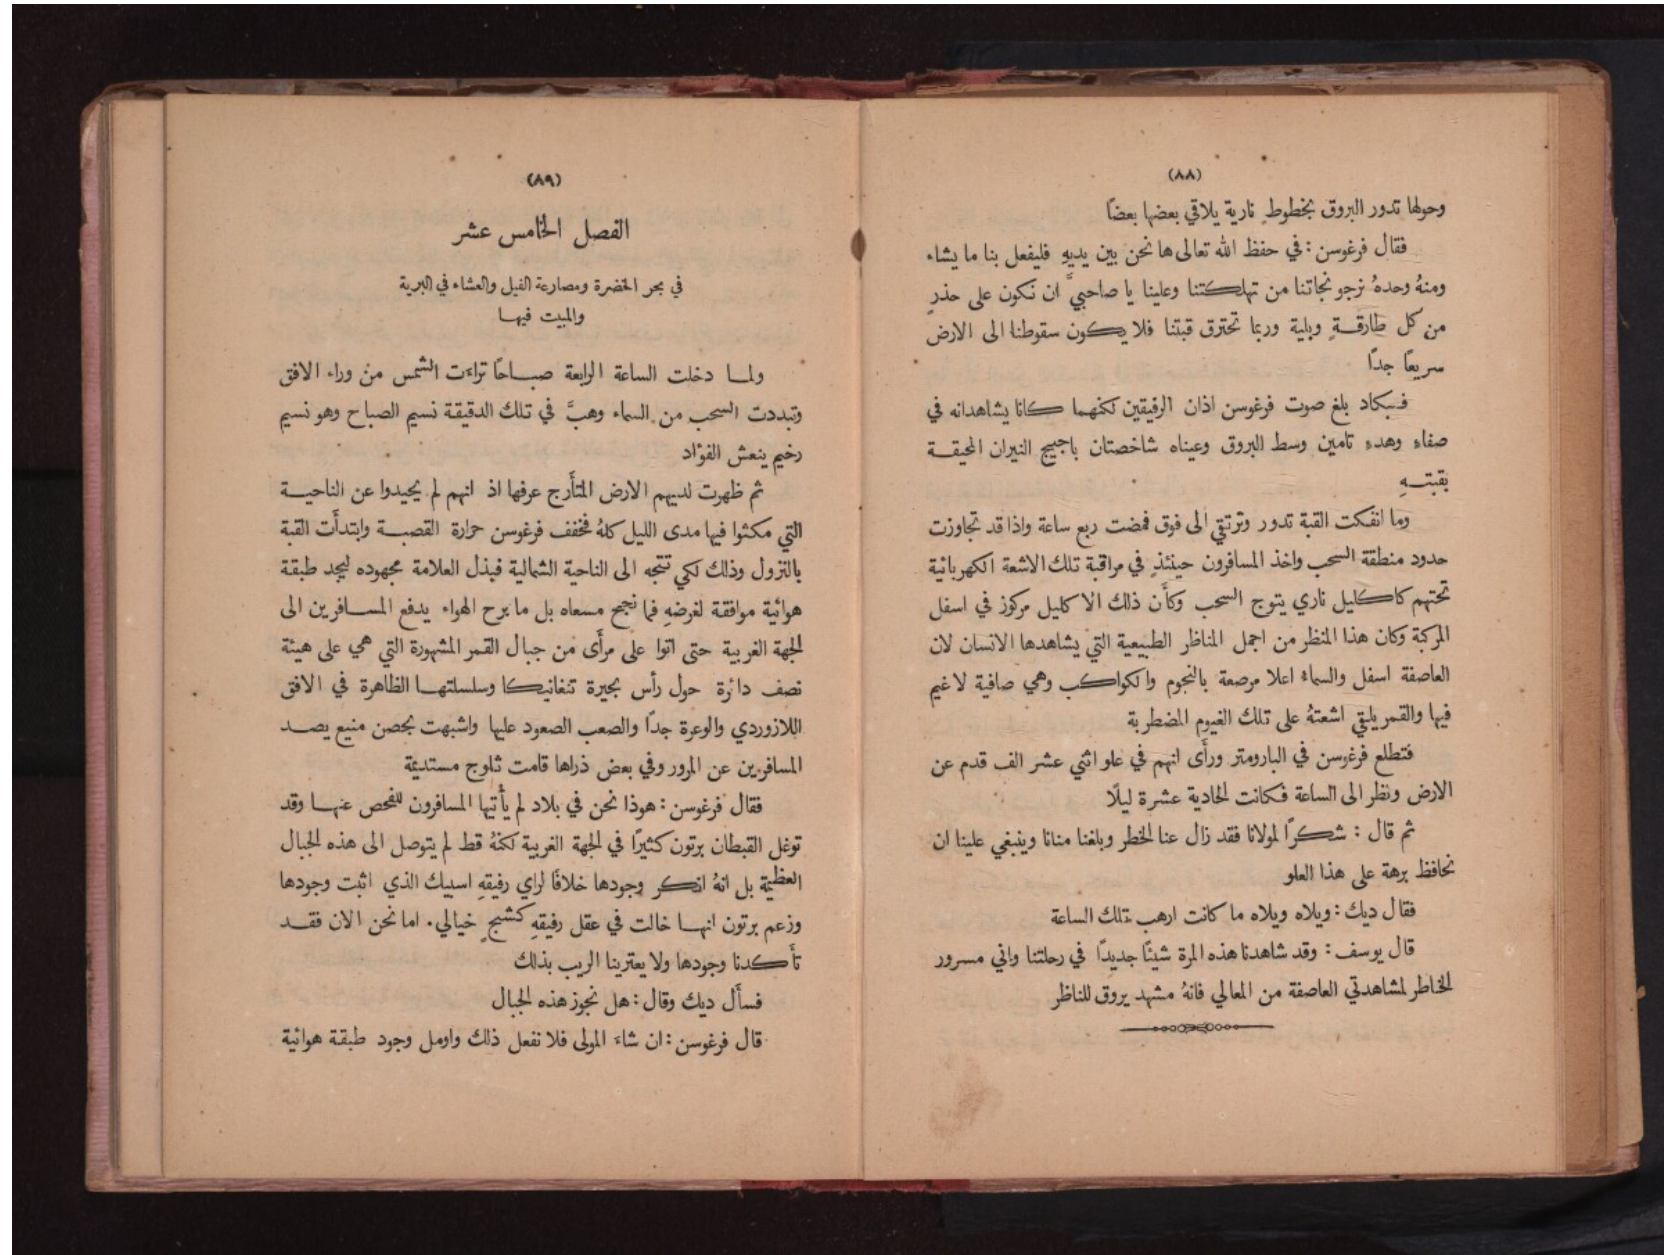 (٨٨)
وحولها تدور البروق بخطوطٍ نارية يلاقي بعضها بعضًا
فقال فرغوسن : في حفظ الله تعالى ها نحن بين يديهِ فليفعل بنا ما يشاء
ومنهُ وحدهُ نرجو نجاتنا من تهلكتنا وعلينا يا صاحبيَّ ان نكون على حذرٍ
من كل طارقةٍ وبلية وربما تحترق قبتنا فلا يكون سقوطنا الى الارض
سريعًا جدًا
فبكاد بلغ صوت فرغوسن اذان الرفيقين لكنهما كانا يشاهدانه في
صفاءٍ وهدءٍ تامين وسط البروق وعيناه شاخصتان باجيج النيران المحيقة
بقبتهِ
وما انفكت القبة تدور وترتقي الى فوق فمضت ربع ساعة واذا قد تجاوزت
حدود منطقة السحب واخذ المسافرون حينئذٍ في مراقبة تلك الاشعة الكهربائية
تحتهم كاكليل ناري يتوج السحب وكأن ذلك الاكليل مركوز في اسفل
المركبة وكان هذا المنظر من اجمل المناظر الطبيعية التي يشاهدها الانسان لان
العاصفة اسفل والسماء اعلا مرصعة بالنجوم والكواكب وهي صافية لا غيم
فيها والقمر يلقي اشعتهُ على تلك الغيوم المضطربة
فتطلع فرغوسن في البارومتر ورأى انهم في علو اثني عشر الف قدم عن
الارض ونظر الى الساعة فكانت الحادية عشرة ليلًا
ثم قال : شكرًا لمولانا فقد زال عنا الخطر وبلغنا منانا وينبغي علينا ان
نحافظ برهة على هذا العلو
فقال ديك : ويلاه ويلاه ما كانت ارهب تلك الساعة
قال يوسف : وقد شاهدنا هذه المرة شيئًا جديدًا في رحلتنا واني مسرور
الخاطر لمشاهدتي العاصفة من المعالي فانهُ مشهد يروق للناظر
(٨٩)
الفصل الخامس عشر
في بحر الخضرة ومصارعة الفيل والعشاء في البرية
والمبيت فيها
ولما دخلت الساعة الرابعة صباحًا تراءت الشمس من وراء الافق
وتبددت السحب من السماء وهبَّ في تلك الدقيقة نسيم الصباح وهو نسيم
رخيم ينعش الفؤاد
ثم ظهرت لديهم الارض المتأرج عرفها اذ انهم لم يحيدوا عن الناحية
التي مكثوا فيها مدى الليل كلهُ فخفف فرغوسن حرارة القصبة وابتدأت القبة
بالنزول وذلك لكي تتجه الى الناحية الشمالية فبذل العلامة مجهوده ليجد طبقة
هوائية موافقة لغرضهِ فما نجح مسعاه بل ما برح الهواء يدفع المسافرين الى
الجهة الغربية حتى اتوا على مرأى من جبال القمر المشهورة التي هي على هيئة
نصف دائرة حول رأس بحيرة تنغانيكا وسلسلتها الظاهرة في الافق
اللازوردي والوعرة جدًا والصعب الصعود عليها واشبهت بحصن منيع يصد
المسافرين عن المرور وفي بعض ذراها قامت ثلوج مستديمة
فقال فرغوسن : هوذا نحن في بلاد لم يأتيها المسافرون للفحص عنها وقد
توغل القبطان برتون كثيرًا في الجهة الغربية لكنهُ قط لم يتوصل الى هذه الجبال
العظيمة بل انهُ انكر وجودها خلافًا لراي رفيقهِ اسبيك الذي اثبت وجودها
وزعم برتون انها خالت في عقل رفيقهِ كشبحٍ خيالي. اما نحن الان فقد
تأكدنا وجودها ولا يعترينا الريب بذلك
فسأل ديك وقال : هل نجوز هذه الجبال
قال فرغوسن : ان شاءَ المولى فلا نفعل ذلك واومل وجود طبقة هوائية